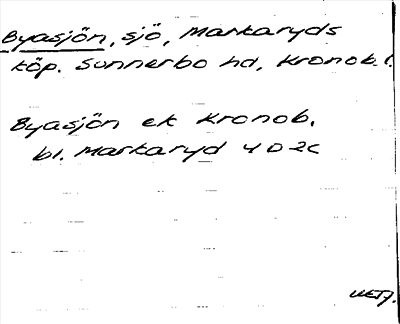 Byasjön, sjö, Markaryds
köp. Sunnerbo hd, Kronob.l.
Byasjön ek Kronob.
bl. Markaryd 4D2c